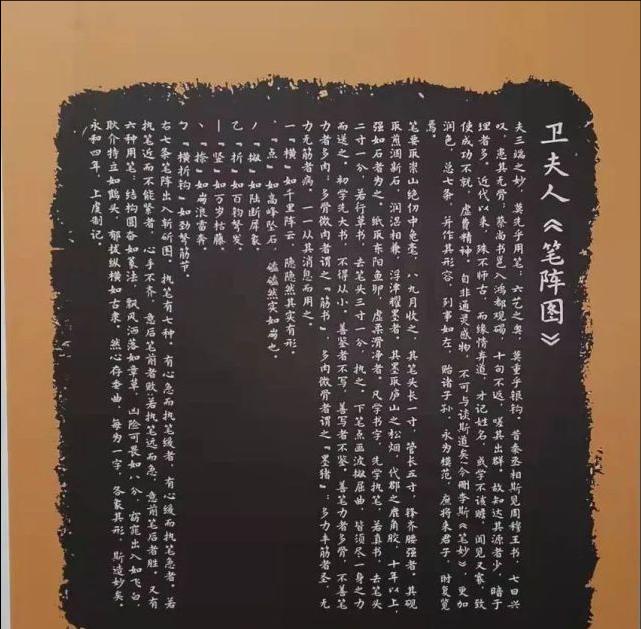 卫夫人《笔阵图》
夫三端之妙，莫先乎用笔；六艺之奥，莫重乎银钩。昔秦丞相斯见周穆王书，七日兴
叹，患其无骨；蔡尚书邕入鸿都观碣，十旬不返，嗟其出群。故知达其源者少，暗于
理者多。近代以来，殊不师古，而缘情弃道，才记姓名，或学不该赡，闻见又寡，致
使成功不就，虚费精神。自非通灵感物，不可与谈斯道矣！今删李斯《笔妙》，更加
润色，总七条，并作其形容，列事如左，贻诸子孙，永为模范，庶将来君子，时复览
焉。
笔要取崇山绝仞中兔毫，八九月收之，其笔头长一寸，管长五寸，锋齐腰强者。其砚
取煎涸新石，润涩相兼，浮津耀墨者。其墨取庐山之松烟，代郡之鹿角胶，十年以上，
强如石者为之。纸取东阳鱼卵，虚柔滑净者。凡学书字，先学执笔，若真书，去笔头
二寸一分，若行草书，去笔头三寸一分，执之。下笔点画波撇屈曲，皆须尽一身之力
而送之。初学先大书，不得从小。善鉴者不写，善写者不鉴。善笔力者多骨，不善笔
力者多肉；多骨微肉者谓之“筋书”，多肉微骨者谓之“墨猪”；多力丰筋者圣，无
力无筋者病。一一从其消息而用之。
一“横”如千里阵云，隐隐然其实有形。
、“点”如高峰坠石，磕磕然实如崩也。
丿“撇”如陆断犀象。
乙“折”如百钧弩发。
丨“竖”如万岁枯藤。
㇏“捺”如崩浪雷奔。
㇆“横折钩”如劲弩筋节。
右七条笔阵出入斩斫图。执笔有七种。有心急而执笔缓者，有心缓而执笔急者。若
执笔近而不能紧者，心手不齐，意后笔前者败；若执笔远而急，意前笔后者胜。又有
六种用笔：结构圆奋如篆法，飘风洒落如章草，凶险可畏如八分，窈窕出入如飞白，
耿介特立如鹤头，郁拔纵横如古隶。然心存委曲，每为一字，各象其形，斯造妙矣。
永和四年，上虞制记。